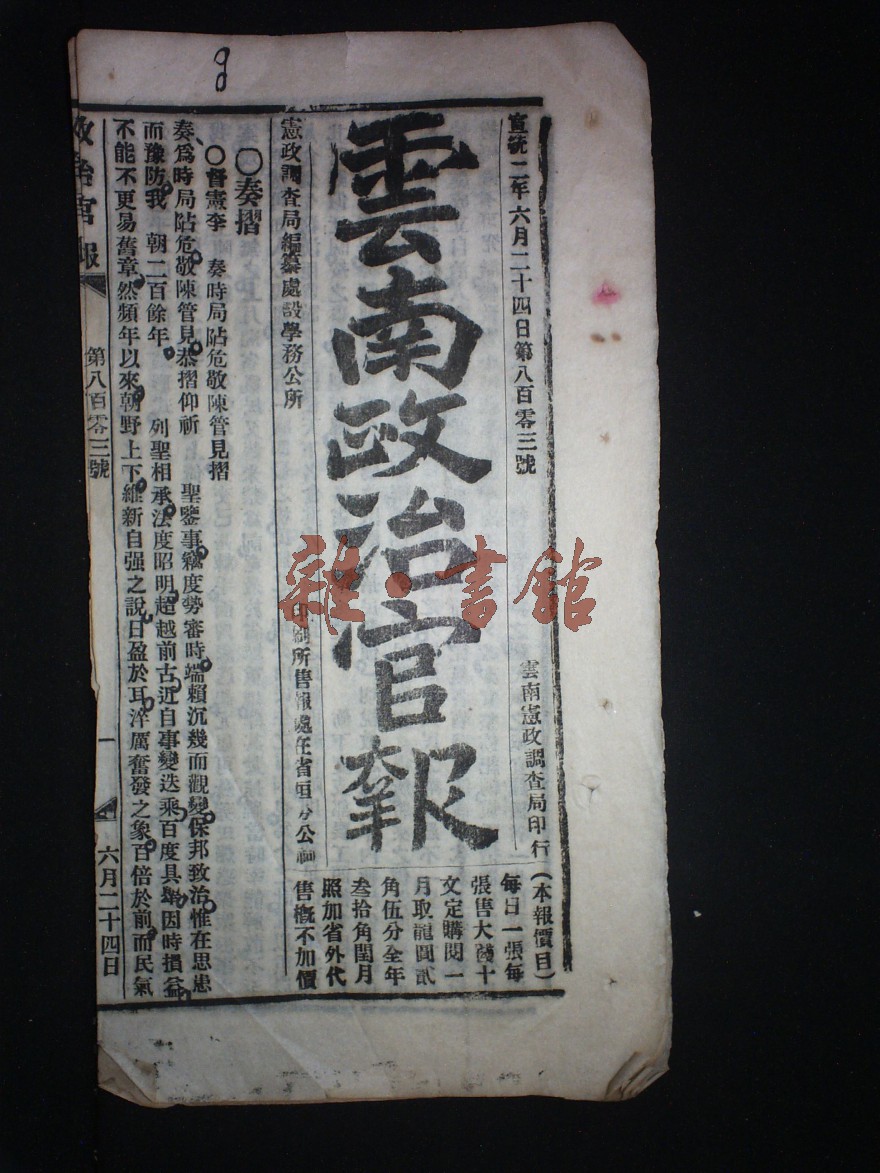 宣統二年六月二十四日第八百零三號
雲南憲政調查局印行
雲南政治官報
（本報價目）
每日一張每
張售大錢十
文定購閱一
月取龍圓貳
角伍分全年
叁拾角閏月
照加省外代
售概不加價
憲政調查局編纂處設學務公所
印刷所售報處在省垣
〇奏摺
〇督憲李　奏時局阽危敬陳管見摺
奏爲時局阽危敬陳管見恭摺仰祈　聖鑒事竊度勢審時端賴沉幾而觀變保邦致治惟在思患
而豫防我　朝二百餘年　列聖相承法度昭明超越前古近自事變迭乘百度具舉因時損益
不能不更易舊章然頻年以來朝野上下維新自强之說日盈於耳洋厲奮發之象百倍於前而民氣
政治官報
第八百零三號
一
六月二十四日
雜·書館
g